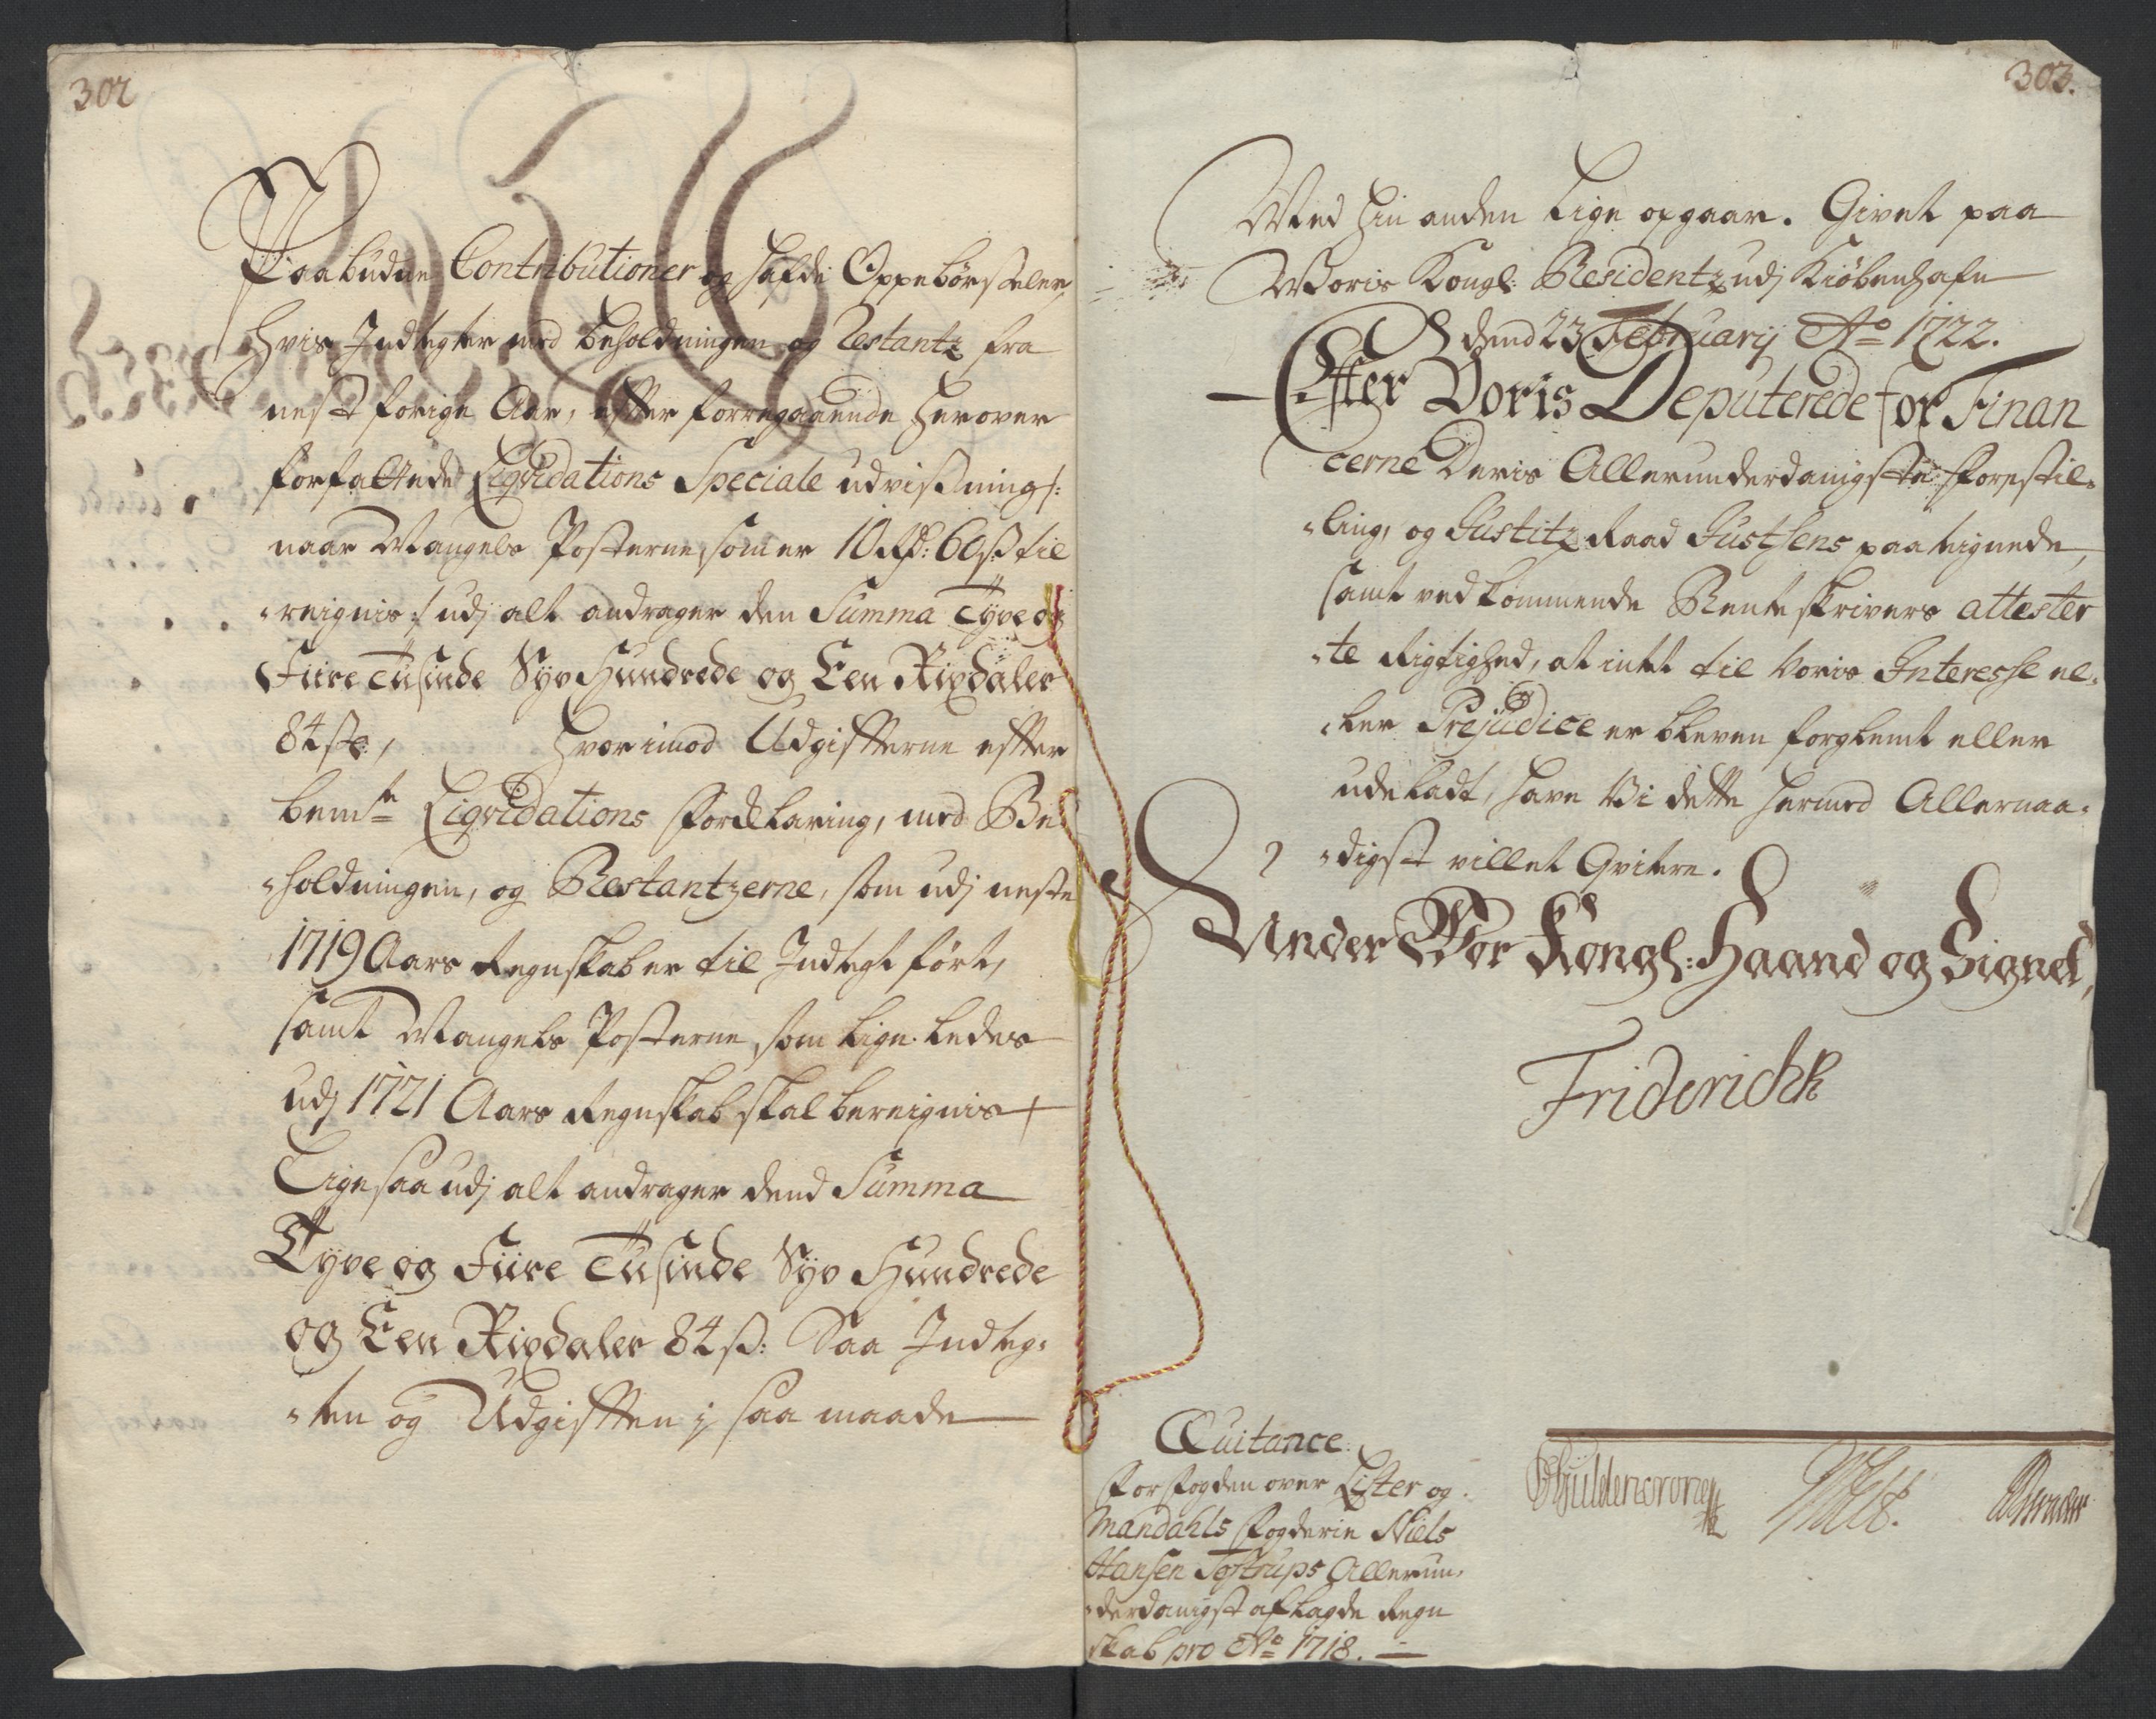 302
Paabudne Contributioner og hafde Oppebørsteler,
hvis Indtegter med beholdningen og Restantz fra
nest forige Aar, efter forregaaende herover
forfattede Liqvidations Speciale udvisning/:
naar Mangels Posterne, som er 10 Rd: 60 ß til
-reignis :/ udj alt andrager den Summa Tÿve og
Fiire Tüsinde Syv Hundrede og Een Rixdaler
84 ß, hvorimod Udgifterne efter
bemte Liqvidations Forklaring, med Be
-holdningen, og Restantzerne, som udj neste
1719 Aars Regnskaber til Indtegt ført,
samt Mangels Posterne, som lige ledes
udj 1721 Aars Regnskab skal bereignis
Ligesaa udj alt andrager dend Summa
Tÿve og Fiire Tüsinde Syv Hundrede
og Een Rixdaler 84 ß: Saa Indteg-
-ten og Udgiften j saa maade
303.
Med hin anden lige opgaar. Givet paa
Woris Kongl: Residentz udj Kiöbenhafn
dend 23 February Ao 1722.
Efter Voris Deputerede for Finan
cerne Deris Allerunderdanigste Forestil-
-ling, og Justitz Raad Justsens paa teignede,
samt vedkommende Renteskrivers attester
-te Rigtighed, at intet til Voris Interesse el-
-ler Prejudice er bleven forglemt eller
udeladt, have Vi dette hermed Allernaa-
-digst villet Qvitere.
Under Vor Kongl: Haand og Signet,
Friderich R
Quitance
For Fogden over Lister og
Mandahls Fogderie Niels
Hansen Tostrups Allerun-
-derdanigst aflagde Regn
skab pro Ao 1718.
Güldencrone